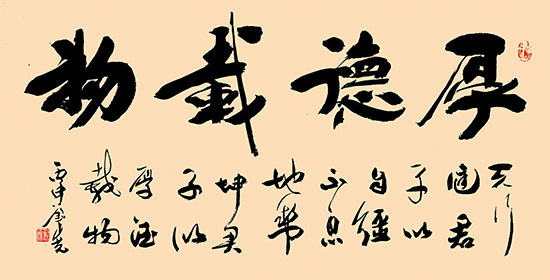 厚德載物
天行
健君
子以
自彊
不息
地勢
坤君
子以
厚德
載物
丙申